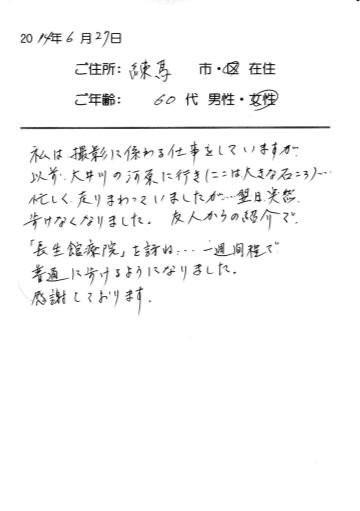 2014年6月27日
ご住所: 練馬 市・区 在住
ご年齢: 60代 男性・女性
私は撮影に係わる仕事をしていますが
以前、大井川の河原に行き(ここは大きな石ころ)…
忙しく走りまわっていましたが…翌日突然、
歩けなくなりました。友人からの紹介で、
「長生館療院」を訪ね…一週間程で
普通に歩けるようになりました。
感謝しております。